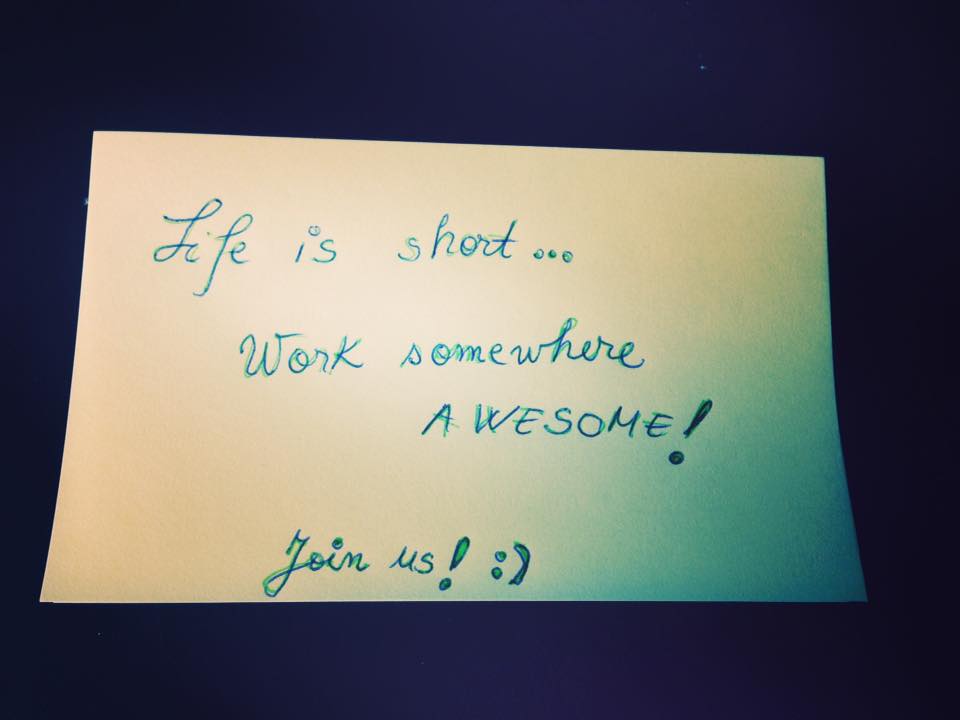 Life is short...
Work somewhere
AWESOME!
Join us! :)